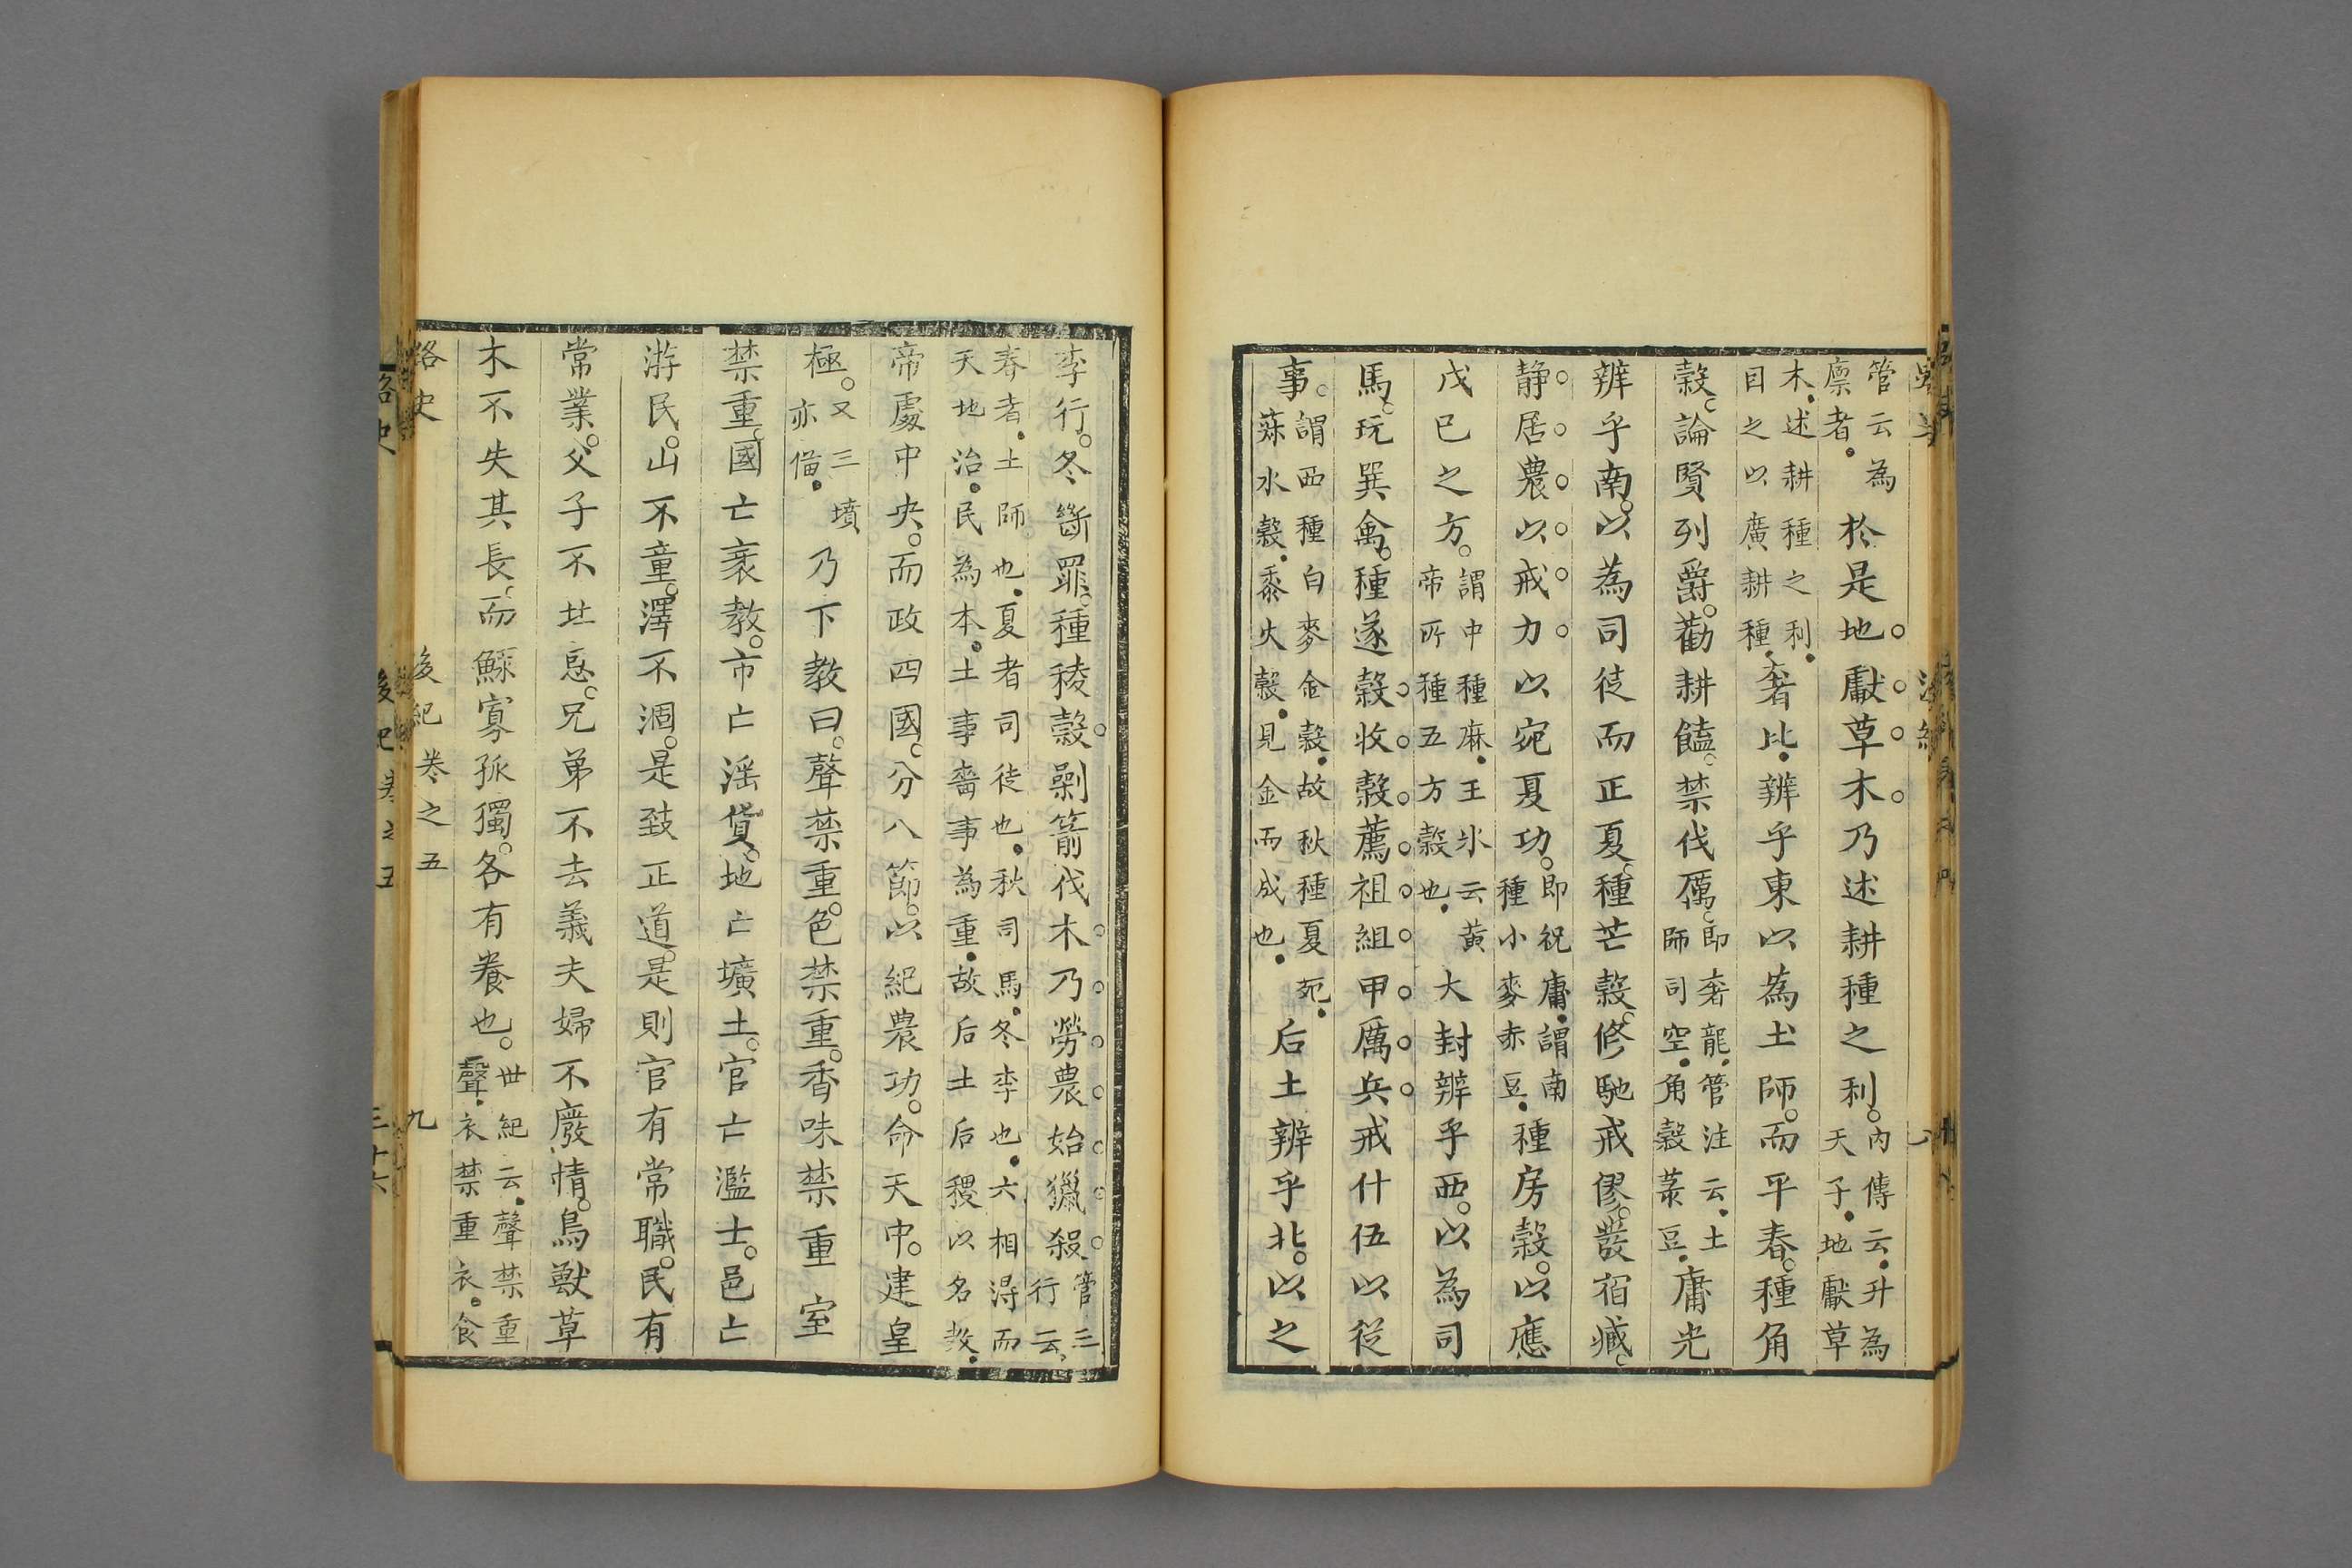 管云為廪者。於是地獻草木乃述耕種之利。內傳云。升為天子。地獻草
木。述耕種之利。目之以廣耕種。奢比。辨乎東以為土師。而平春。種角
穀。論賢列爵。勸耕饁。禁伐厲。即奢龍。管注云。土師司空。角穀菉豆。庸光
辨乎南。以為司徒而正夏。種芒穀。修馳戒僇。發宿臧。
静居農以戒力以宛夏功。即祝庸。謂南種小麥赤豆。種房穀。以應
戊巳之方。謂中種麻。王氷云黃帝所種五方穀也。大封辨乎西。以為司
馬。玩巽禽。種遂穀收穀薦祖組甲厲兵戒什伍以從
事。謂西種白麥金穀。故秋種夏死。蔴水穀。黍火穀。見金而成也。后土辨乎北。以之
李行。冬斷罪。種稜穀剿箭伐木乃勞農始獵殺管三行云。
春者。土師也。夏者司徒也。秋司馬。冬李也。六相淂而天地治。民為本。土事嗇事為重。故后土后稷以名教。
帝處中央。而政四國。分八節。以紀農功。命天中。建皇
極。又三墳亦僃。乃下教曰。聲禁重。色禁重。香味禁重室
禁重。國亡衺教。市亡滛貨。地亡壙土。官亡濫士。邑亡
游民。山不童。澤不涸。是致正道。是則官有常職。民有
常業。父子不㐀㤙。兄弟不去義夫婦不廢情。鳥獸草
木不失其長。而鰥寡孤獨。各有養也。世紀云。聲禁重聲。衣禁重衣。食
路史 後紀卷之五 九